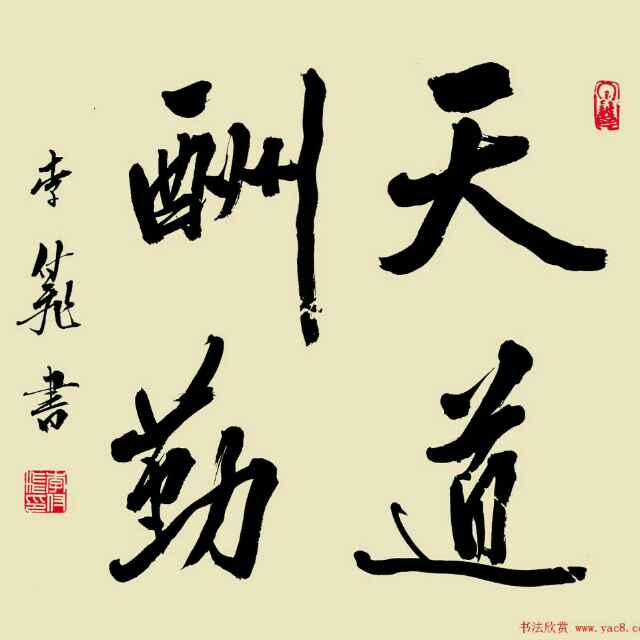 天道
酬勤
李 書
书法欣赏 www.yac8.co